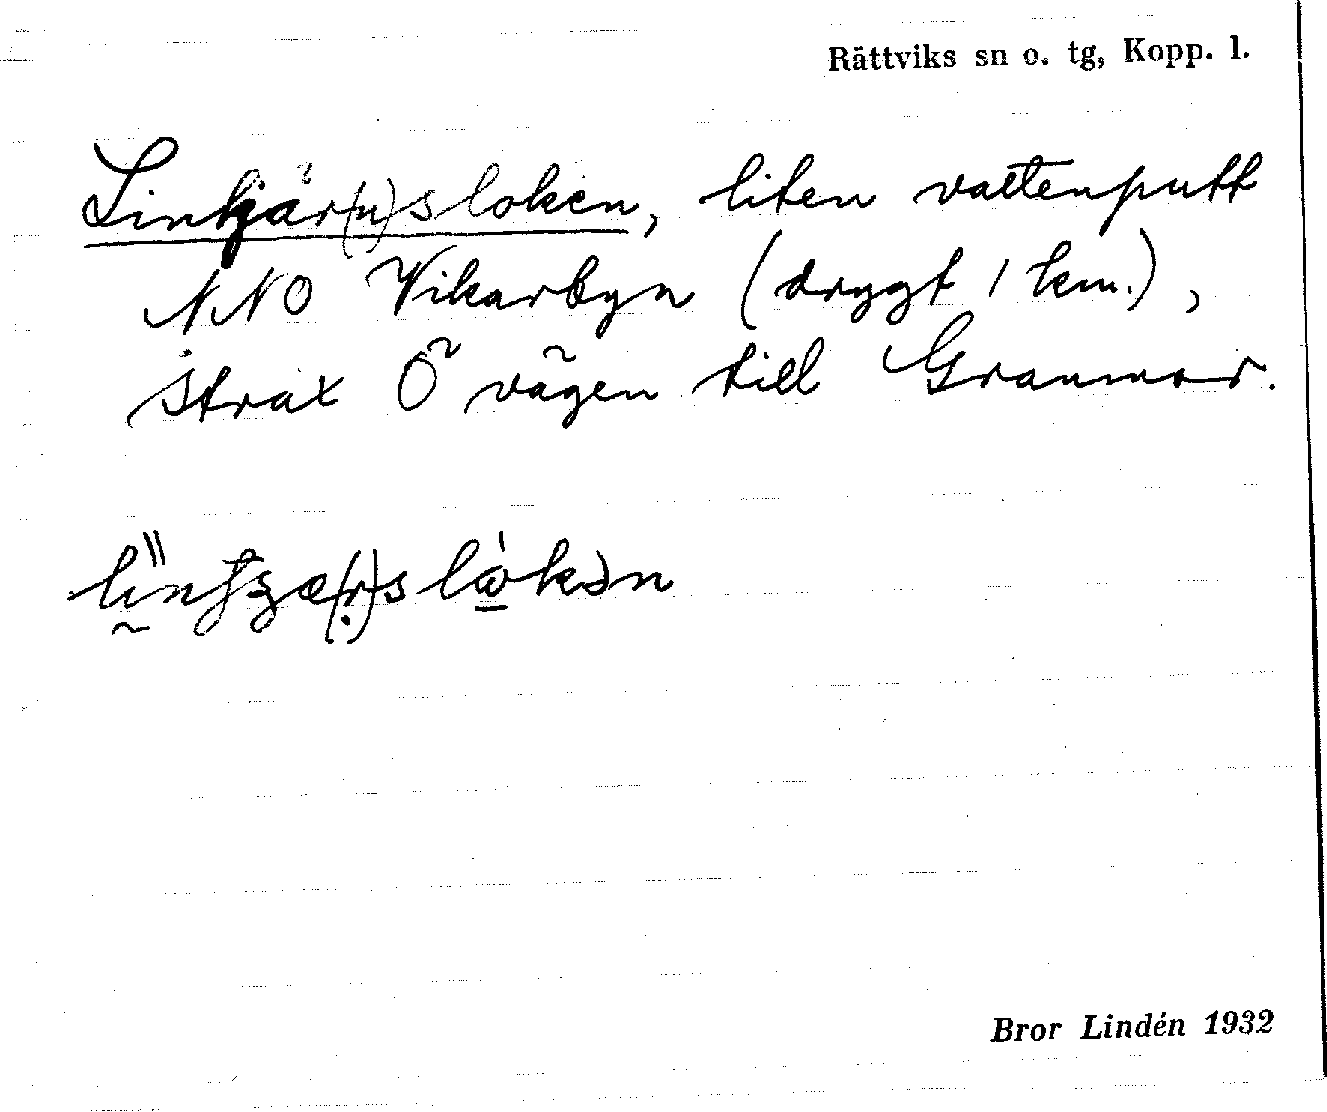 Rättviks sn o. tg, Kopp. l.
Linkjär(n)sloken, liten vattenputt
NNO Vikarbyn (drygt 1 km.),
strax Ö vägen till Granmor.
Bror Lindén 1932